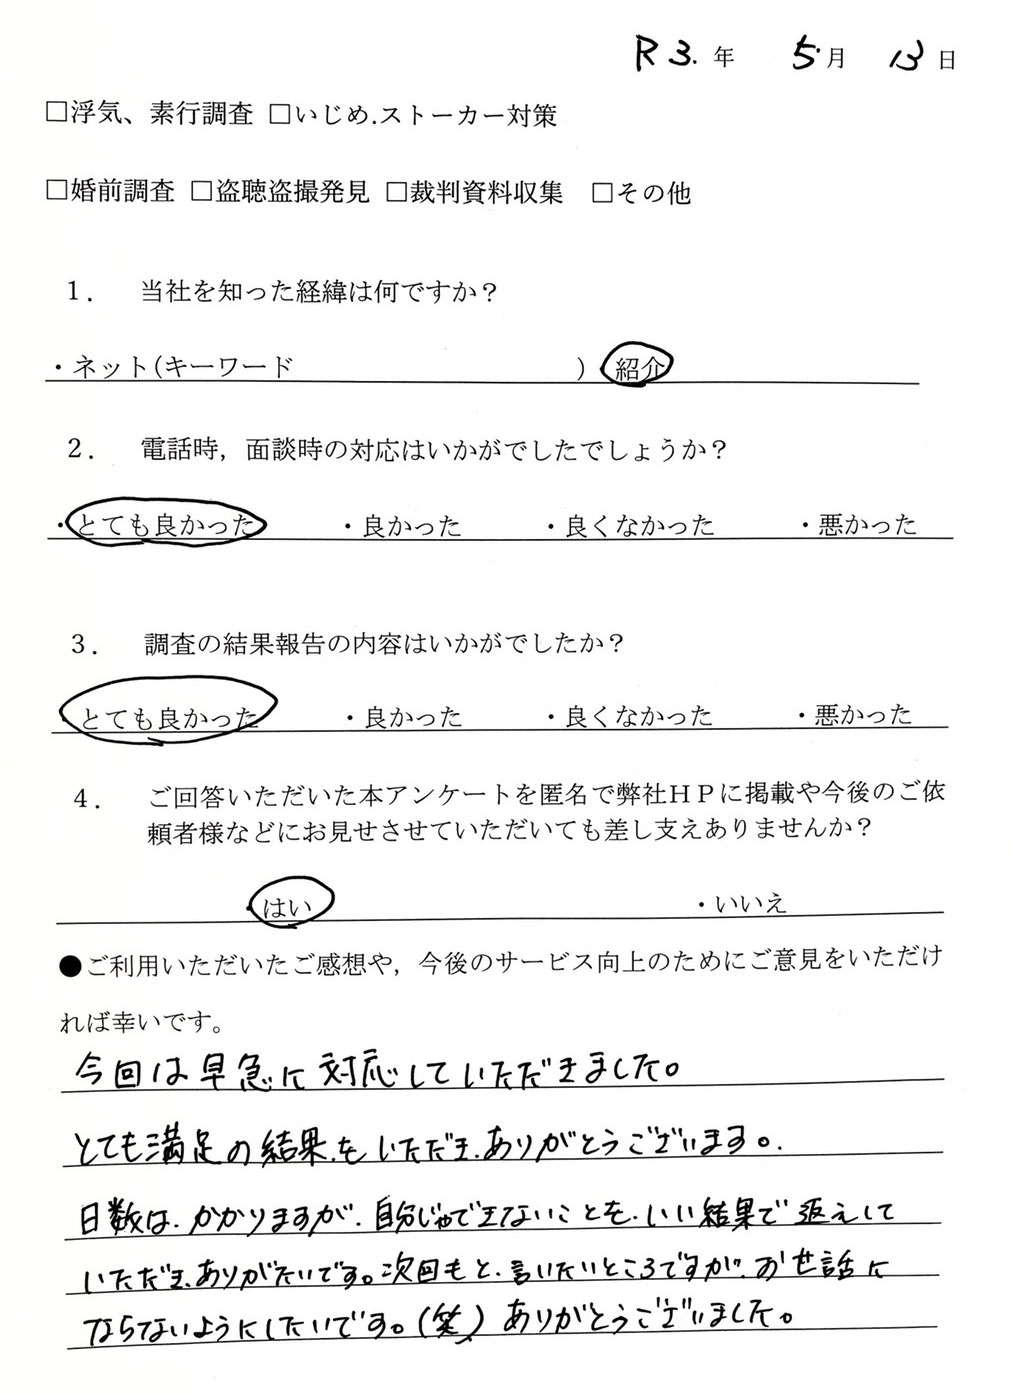 R3.年 5月 13日
□浮気、素行調査 □いじめ.ストーカー対策
□婚前調査 □盗聴盗撮発見 □裁判資料収集 □その他
1. 当社を知った経緯は何ですか？
・ネット(キーワード ) 紹介
2. 電話時，面談時の対応はいかがでしたでしょうか？
・とても良かった ・良かった ・良くなかった ・悪かった
3. 調査の結果報告の内容はいかがでしたか？
・とても良かった ・良かった ・良くなかった ・悪かった
4. ご回答いただいた本アンケートを匿名で弊社ＨＰに掲載や今後のご依
頼者様などにお見せさせていただいても差し支えありませんか？
・はい ・いいえ
●ご利用いただいたご感想や，今後のサービス向上のためにご意見をいただけ
れば幸いです。
今回は早急に対応していただきました。
とても満足の結果.をいただき.ありがとうございます。.
日数は.かかりますが.自分じゃできないことを.いい結果で返えして
いただき.ありがたいです。次回もと.言いたいところですが.お世話に
ならないようにしたいです。(笑) ありがとうございました。